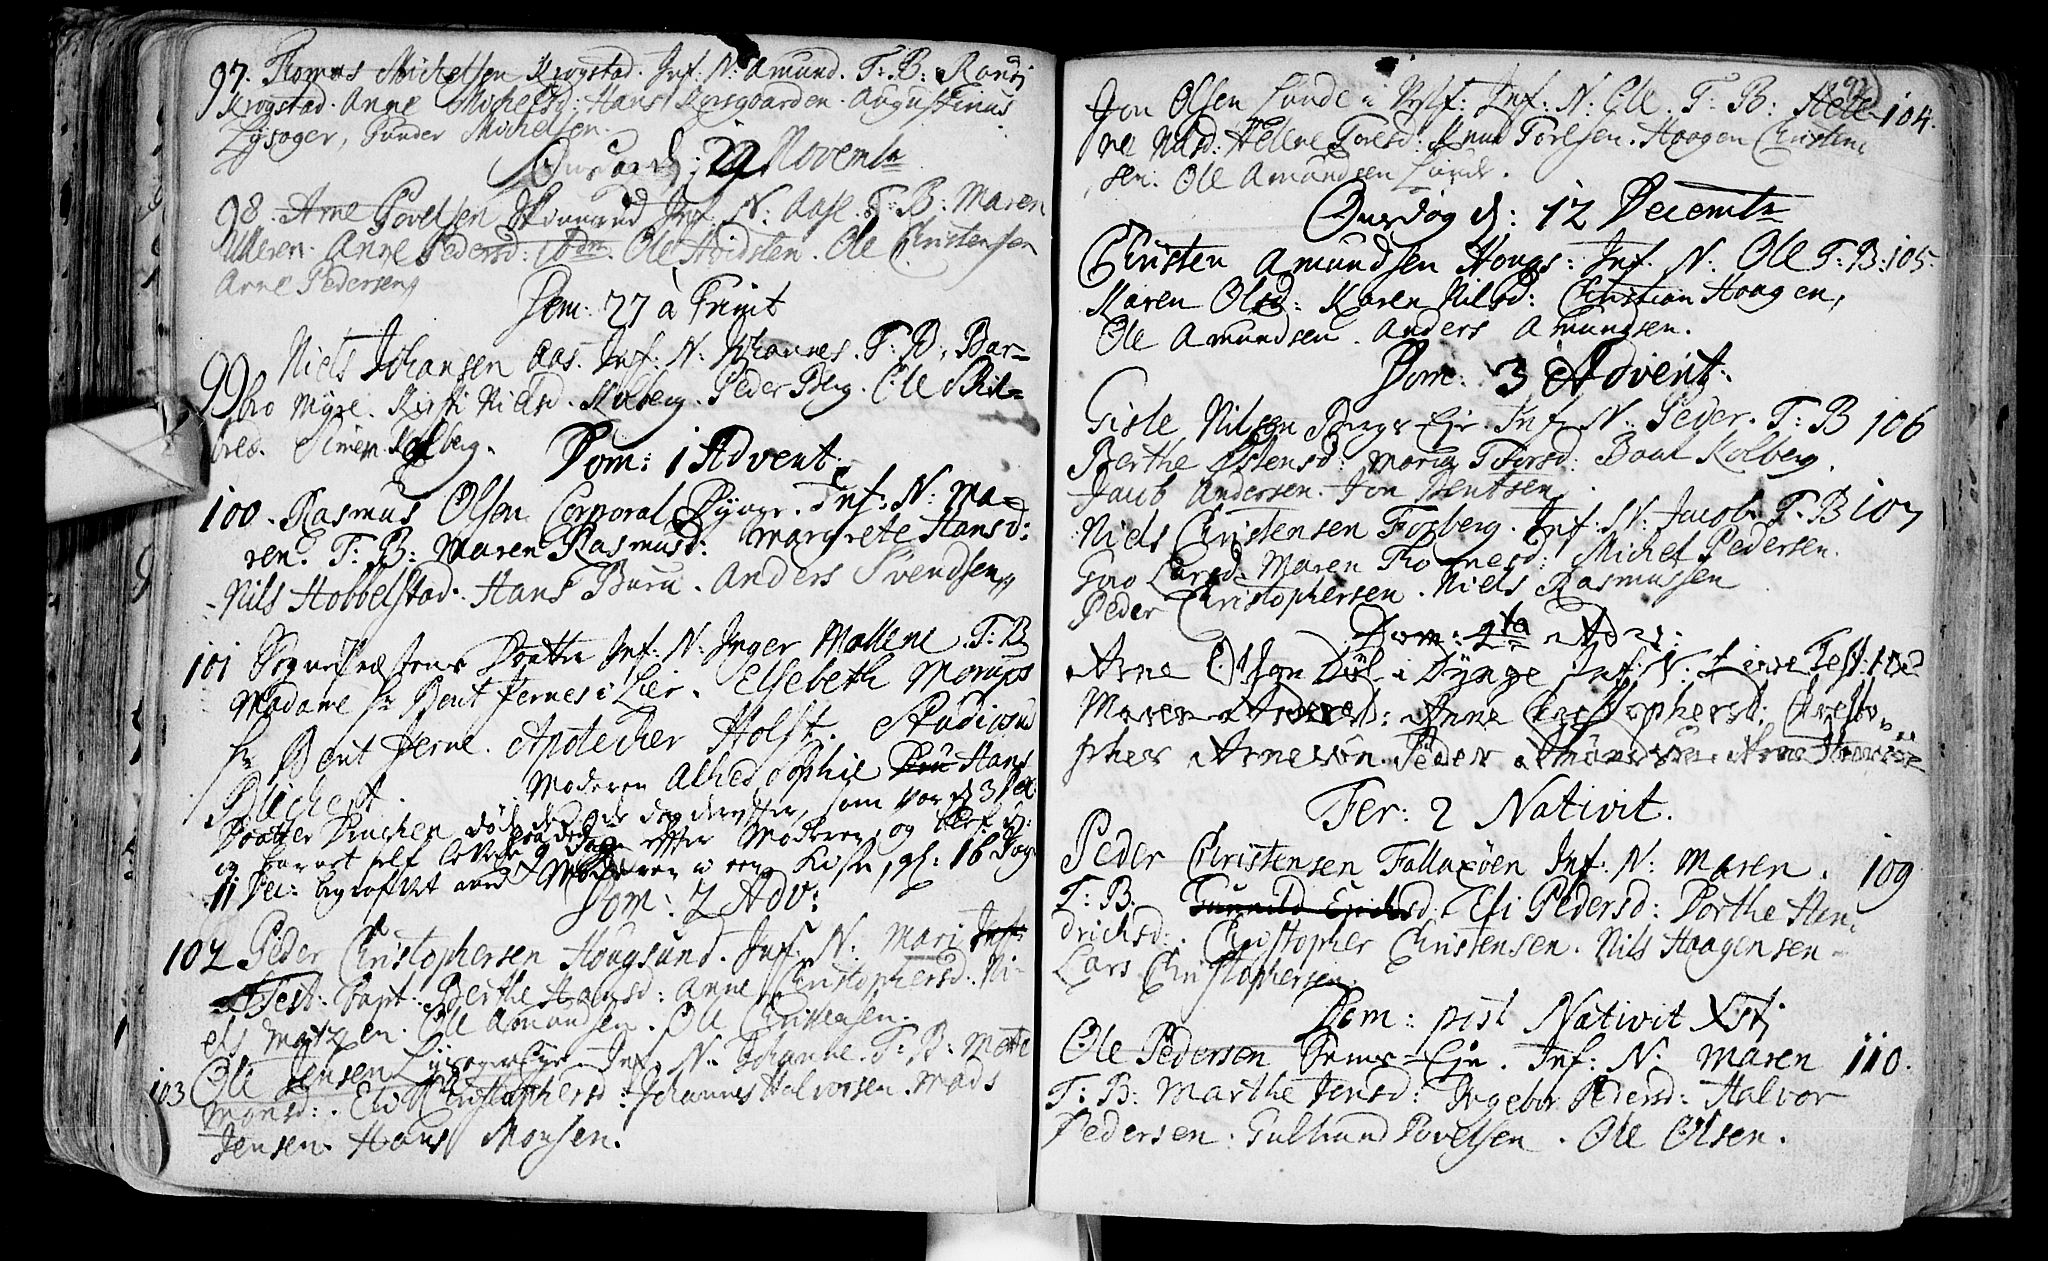 97. Thomas Michelsen Krogstad. Inf: N: Amund. T: B: Randi
Krogstad. Anne Michelsd: Hans Korsgaarden. Augustinus
Lysager, Gunder Michelsen.
Onsdag d: 29 Novembr
98. Arne Povelsen Inf: N: Aase. T: B: Maren
Ulleren. Anne Pedersd: Ole Hvidsten. Ole Christensen
Arne Pedersen
Dom: 27 à Trinit
99 Niels Johansen Aas. Inf: N: Johannes. T: B: Bar-
bro Myre. Kirsti Nielsd. Kolberg. Peder Berg. Ole Skil-
bred. Simen Kolberg.
Dom: 1 Advent:
100. Rasmus Olsen Corporal Rynge. Inf: N: Ma-
ren. T: B: Maren Rasmusd: Margrete Hansd:
Nils Hobbelstad. Hans Buru. Anders Svendsen
101 Sogne Præstens Daatter Inf: N: Inger Mallene. T: B
Madame Hr Bent Jernes i Lier. Elsebeth Morups
Hr Bent Jerne. Apotecher Holst. Studiosus
Blichert. Moderen Alhed Sophie Hans
Daatter døde dag derefter, som var d 3 Dec:
og barnet self levede 9 Dage efter Moderen, og blef d:
11 Dec: begrafvet med Moderen i een Kiste, gl: 16 Dage
Dom: 2 Adv:
102 Peder Christophersen Hougsund. Inf: N: Mari Inf:
Test: Bapt: Berthe Hansd: Anne Christophersd: Ni-
els Matzen. Ole Amundsen. Ole Christensen.
103 Ole Jensen Lysager Eje. Inf: N: Johanne T: B: Mette
Monsd: Christophersd: Johannes Halvorsen. Mads
Jensen. Hans Monsen.
Jon Olsen Lunde i Inf: N: Ole. T: B: Hele- 104.
ne Nilsd: Hellene Toresd: Knud Toresen. Haagen Christen-
sen. Ole Amundsen Lunde.
Onsdag d: 12 Decembr
Christen Amundsen Hougs: Inf: N: Ole T: B: 105.
Maren Olsd: Karen Nilsd: Christian Haagen,
Ole Amundsen. Anders Amundsen.
Dom: 3 Advent:
Gisle Nilsen Berg Eje. Inf: N: Peder. T: B 106
Berthe Østensd: Maria Torsd: Boul Kolberg.
Jacob Andersen. Jon Bentsen
Niels Christensen Fosberg. Inf: N: Jacob. T: B 107
Goro Larsd: Maren Thomesd: Michel Pedersen.
Peder Christophersen. Niels Rasmussen
Dom: 4ta Adv:
Arne Olsen Døl i Dynge Inf: N: Test: 108
Maren Andersd: Anne Christophersd: Christo-
pher Arnesøn. Peder Amundsøn. Arne
Fer: 2 Nativit.
Peder Christensen Fallaxøen Inf: N: Maren. 109
T: B. Gunnild Erichsd. Eli Pedersd: Dorthe Hen-
drichsd: Christopher Christensen. Nils Haagensen
Lars Christophersen.
Dom: post Nativit Xsti
Ole Pedersen Sems-Eje. Inf: N: Maren 110.
T: B: Marthe Jensd: Ingebor Pedersd: Halvor
Pedersen: Gulbrand Povelsen. Ole Olsen.